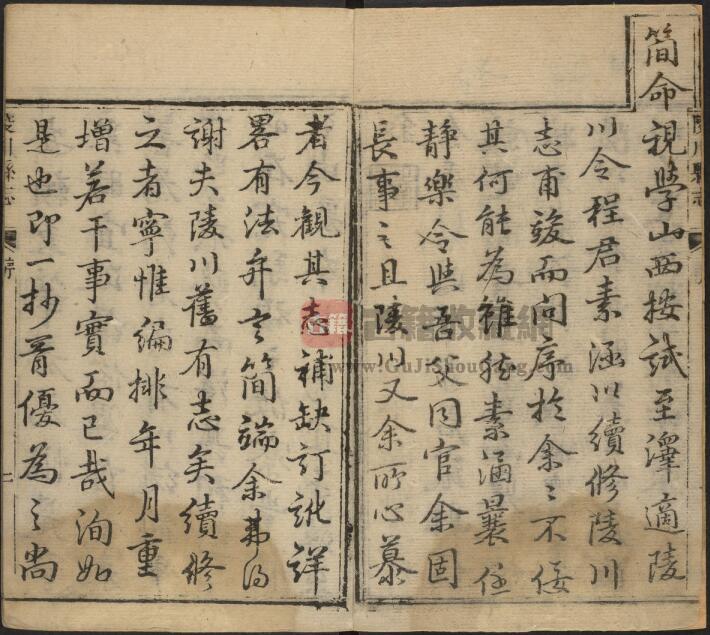 簡命視學山西按試至澤適陵
川令程君素涵以續修陵川
志甫竣而問序於余〻不佞
其何能為雖然素涵曩任
靜樂令與吾父同官余固
長事之且陵川又余所心慕
者今觀其志補缺訂訛詳
畧有法弁言簡端余弗得
謝夫陵川舊有志矣續修
之者寧惟編排年月重
增若干事實而已哉洵如
是也即一抄胥優為之尚
陵川縣志
序
陵川縣志
序
古籍收藏網
www.GuJiShouCang.com